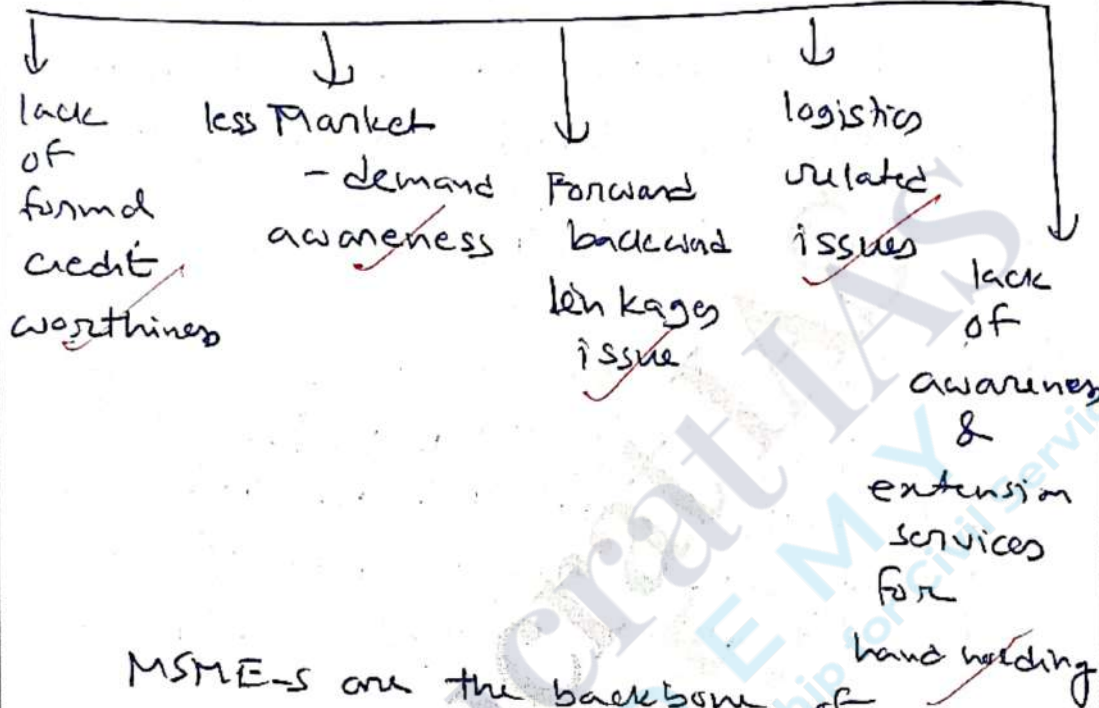 lack
of
formal
credit
worthiness
less Market
- demand
awareness
Forward
backward
linkages
issue
logistics
related
issues
lack
of
awareness
&
extension
services
for
hand holding
MSME-s are the backbone of
cratIAS
EMY
hip for Civil Servic